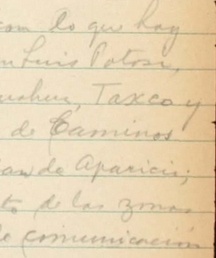 com lo que hay
Luis Potosi,
Taxco y
de Caminos
de Aparicio;
to de las zonas
de comunicación